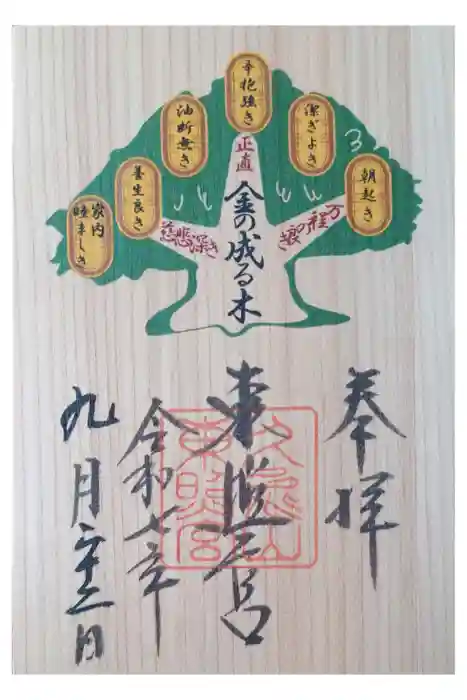 朝起き
潔ぎよき
辛抱強き
油断無き
養生良き
家内
睦ましき
万程の
正直
慈悲深き
金の成る木
奉拝
東照宮
久能山
東照宮
令和七年
九月二十二日